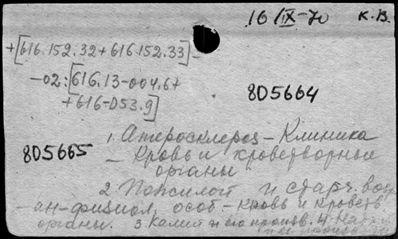 16/IX-70 К.В.
+[616.152.32+616.152.33]-
-02:[616.13-004.6+
+616-053.9]
805664
1. Атеросклероз-Клиника
805665
- Кровь и кроветворные
органы
2. Пожилой и старч. воз
- ан-физиол. особ.-кровь и кроветв
органы. 3. Калий и его произв. 4.